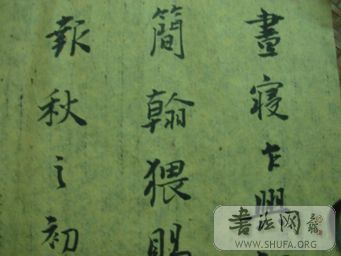 晝寢乍興
簡翰猥賜
報秋之初
書法网
WWW.SHUFA.ORG